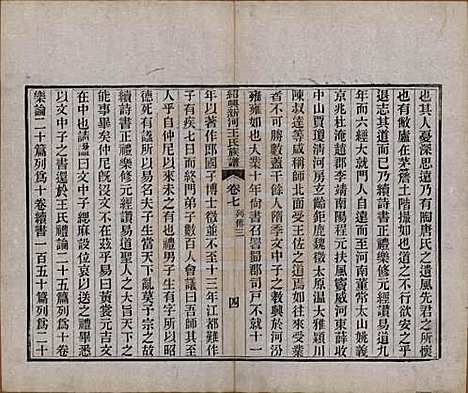 也其人憂深思遠乃有陶唐氏之遺風先君之所懷
也有敝廬在茅簷土階撮如也道之不行欲安之乎
退志其道而已乃續詩書正禮樂修元經讚易道九
年而六經大就門人自遠而至河南董常太山姚義
京兆杜淹趙郡李靖南陽程元扶風竇威河東薛收
中山賈瓊清河房玄齡鉅鹿魏徵太原溫大雅潁川
陳叔達等咸稱師北面受王佐之道焉其往來受業
者不可勝數蓋千餘人隋季文中子之教興於河汾
雍雍如也大業十年尚書召署蜀郡司戶不就十一
紹興新河王氏族譜 卷七 列傳二 四
年以著作郎國子博士徵並不至十三年江都難作
有疾七日而終門弟子數百人會議曰吾師其至
人乎自仲尼以來未之有也禮男子生有字所以昭
德死有謚所以易名夫子生當天下亂莫予宗之故
續詩書正禮樂修元經讚易道聖人之大旨天下之
能事畢矣仲尼既沒文不在茲乎易曰黃裳元吉文
在中也請謚曰文中子緦麻設位哀以送之禮畢悉
以文中子之書還於王氏禮論二十五篇列爲十卷
樂論二十篇列爲十卷續書一百五十篇列爲二十